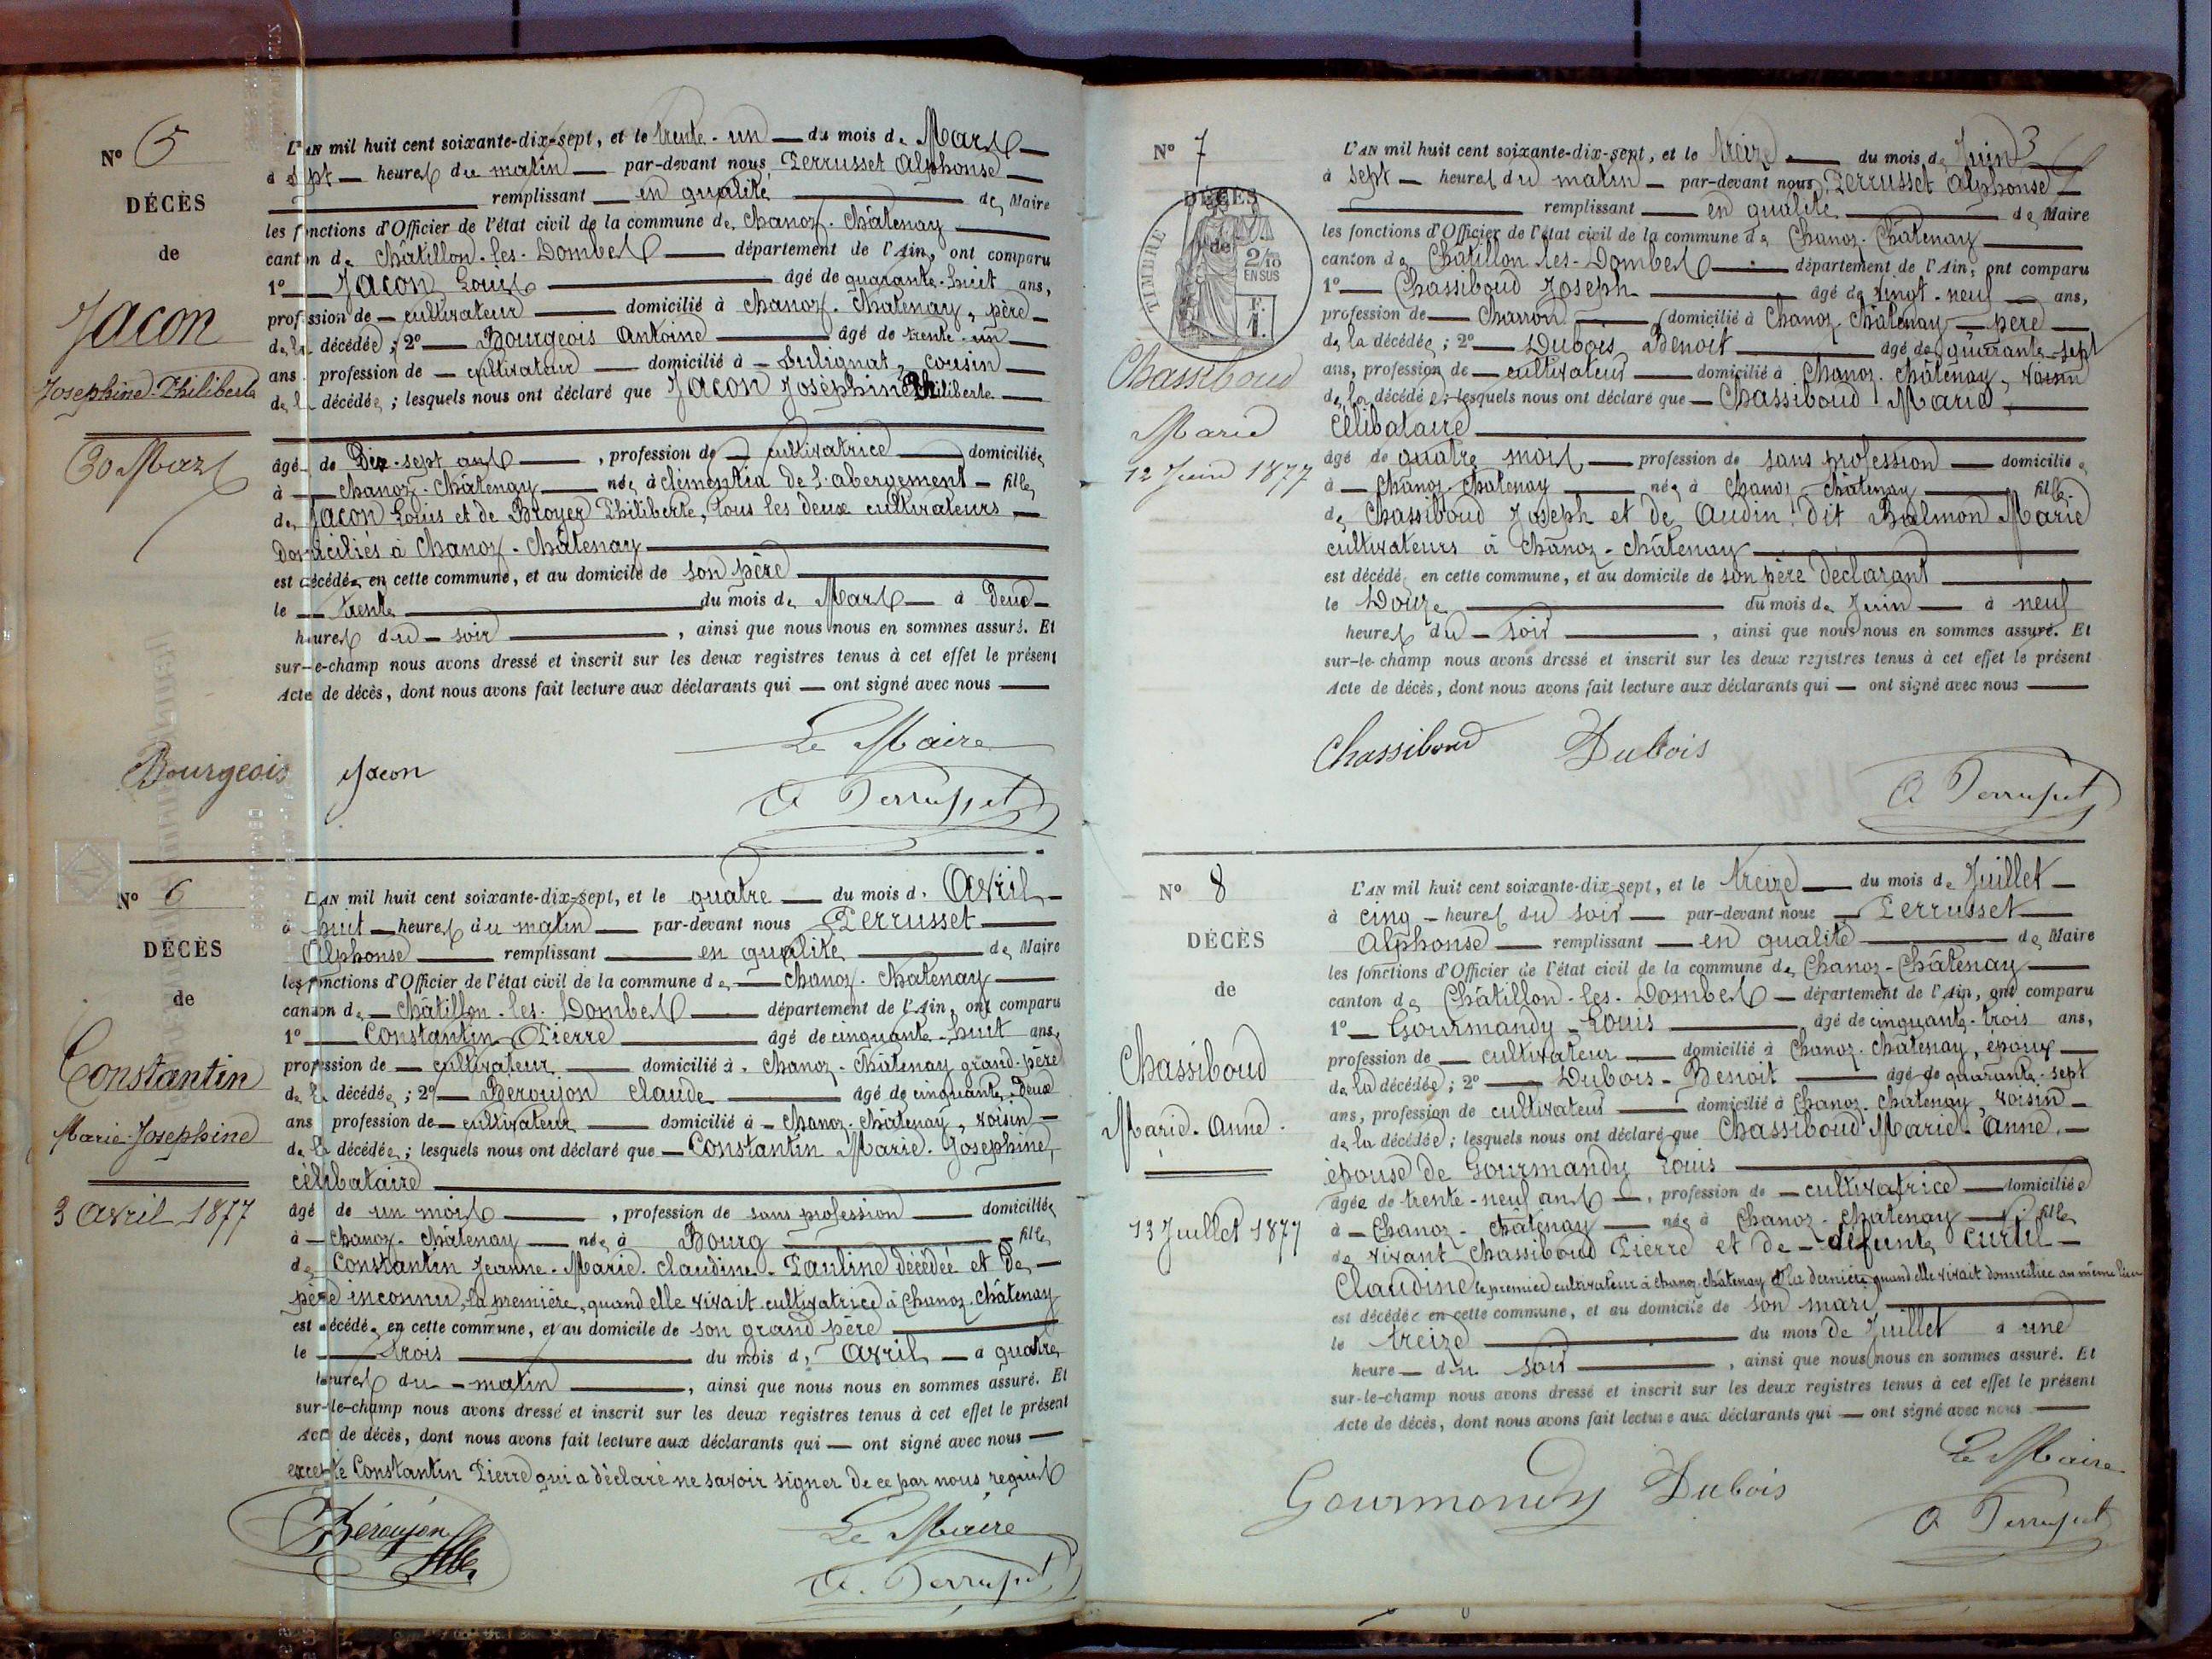 Nº 5
DÉCÈS
de
Jacon
Josephine-Philiberte
30 Mars
L'AN mil huit cent soixante-dix-sept, et le trente-un du mois de Mars
à sept heures du matin par-devant nous, Perrusset Alphonse
remplissant en qualité de Maire
les fonctions d'Officier de l'état civil de la commune de Chanoz-Châtenay
canton de Châtillon-les-Dombes département de l'Ain, ont comparu
1º Jacon Louis âgé de quarante-huit ans,
profession de cultivateur domicilié à Chanoz-Châtenay, père
de la décédée ; 2º Bourgeois Antoine âgé de trente-un
ans profession de cultivateur domicilié à Sulignat, cousin
de la décédée ; lesquels nous ont déclaré que Jacon Joséphine Philiberte
âgé de Dix-sept ans, profession de cultivatrice domiciliée
à Chanoz-Châtenay née à clémentia de l'abergement fille
de Jacon Louis et de Broyer Philiberte, tous les deux cultivateurs
Domiciliés à Chanoz-Châtenay
est décédée en cette commune, et au domicile de son père
le trente du mois de Mars à Deux
heures du soir, ainsi que nous nous en sommes assuré. Et
sur-le-champ nous avons dressé et inscrit sur les deux registres tenus à cet effet le présent
Acte de décès, dont nous avons fait lecture aux déclarants qui ont signé avec nous
Le Maire
Bourgeois Jacon
A Perrusset
Nº 6
DÉCÈS
de
Constantin
Marie-Josephine
3 Avril 1877
L'AN mil huit cent soixante-dix-sept, et le quatre du mois d' Avril
à huit heures du matin par-devant nous Perrusset
Alphonse remplissant en qualité de Maire
les fonctions d'Officier de l'état civil de la commune de Chanoz-Chatenay
canton de Châtillon-les-Dombes département de l'Ain, ont comparu
1º Constantin Pierre âgé de cinquante-huit ans,
profession de cultivateur domicilié à Chanoz-Châtenay grand-père
de la décédée ; 2º Beroujon Claude âgé de cinquante-Deux
ans profession de cultivateur domicilié à Chanoz-Châtenay, voisin
de la décédée ; lesquels nous ont déclaré que Constantin Marie-Josephine,
célibataire
âgé de un mois, profession de sans profession domiciliée
à Chanoz-Châtenay née à Bourg fille
de Constantin Jeanne-Marie-Claudine-Pauline décédée et De
père inconnu, la première, quand elle vivait cultivatrice à Chanoz-Châtenay
est décédée en cette commune, et au domicile de son grand père
le trois du mois d' Avril à quatre
heures du matin, ainsi que nous nous en sommes assuré. Et
sur-le-champ nous avons dressé et inscrit sur les deux registres tenus à cet effet le présent
Acte de décès, dont nous avons fait lecture aux déclarants qui ont signé avec nous
excepté Constantin Pierre qui a déclaré ne savoir signer de ce par nous requis
Béroujon
Le Maire
A. Perrusset
Nº 7
DÉCÈS
de
TIMBRE
2/10
EN SUS
Chassiboud
Marie
12 Juin 1877
L'AN mil huit cent soixante-dix-sept, et le treize du mois de Juin 3
à sept heures du matin par-devant nous, Perrusset Alphonse
remplissant en qualité de Maire
les fonctions d'Officier de l'état civil de la commune de Chanoz-Châtenay
canton de Châtillon-les-Dombes département de l'Ain, ont comparu
1º Chassiboud Joseph âgé de vingt-neuf ans,
profession de Charron domicilié à Chanoz Châtenay père
de la décédée ; 2º Dubois Benoit âgé de quarante-sept
ans, profession de cultivateur domicilié à Chanoz-Châtenay, voisin
de la décédée ; lesquels nous ont déclaré que Chassiboud Marie,
célibataire
âgé de quatre mois profession de sans profession domiciliée
à Chanoz-Châtenay née à Chanoz-Châtenay fille
de Chassiboud Joseph et de Audin dit Balmon Marie
cultivateurs à Chanoz-Châtenay
est décédée en cette commune, et au domicile de son père déclarant
le Douze du mois de Juin à neuf
heures du soir, ainsi que nous nous en sommes assuré. Et
sur-le-champ nous avons dressé et inscrit sur les deux registres tenus à cet effet le présent
Acte de décès, dont nous avons fait lecture aux déclarants qui ont signé avec nous
Chassiboud Dubois
A Perrusset
Nº 8
DÉCÈS
de
Chassiboud
Marie-Anne.
13 Juillet 1877
L'AN mil huit cent soixante-dix-sept, et le treize du mois de Juillet
à cinq heures du soir par-devant nous Perrusset
Alphonse remplissant en qualité de Maire
les fonctions d'Officier de l'état civil de la commune de Chanoz-Châtenay
canton de Châtillon-les-Dombes département de l'Ain, ont comparu
1º Gourmandy Louis âgé de cinquante-trois ans,
profession de cultivateur domicilié à Chanoz-Châtenay, époux
de la décédée ; 2º Dubois-Benoit âgé de quarante-sept
ans, profession de cultivateur domicilié à Chanoz-Châtenay, voisin
de la décédée ; lesquels nous ont déclaré que Chassiboud Marie-Anne,
épouse de Gourmandy Louis
âgée de trente-neuf ans, profession de cultivatrice domiciliée
à Chanoz-Châtenay née à Chanoz-Chatenay fille
de vivant Chassiboud Pierre et de défunte Curtil
Claudine le premier cultivateur à Chanoz-Châtenay et la dernière quand elle vivait domiciliée au même lieu
est décédée en cette commune, et au domicile de son mari
le treize du mois De Juillet à une
heure du soir, ainsi que nous nous en sommes assuré. Et
sur-le-champ nous avons dressé et inscrit sur les deux registres tenus à cet effet le présent
Acte de décès, dont nous avons fait lecture aux déclarants qui ont signé avec nous
Le Maire
Gourmondy Dubois
A Perrusset